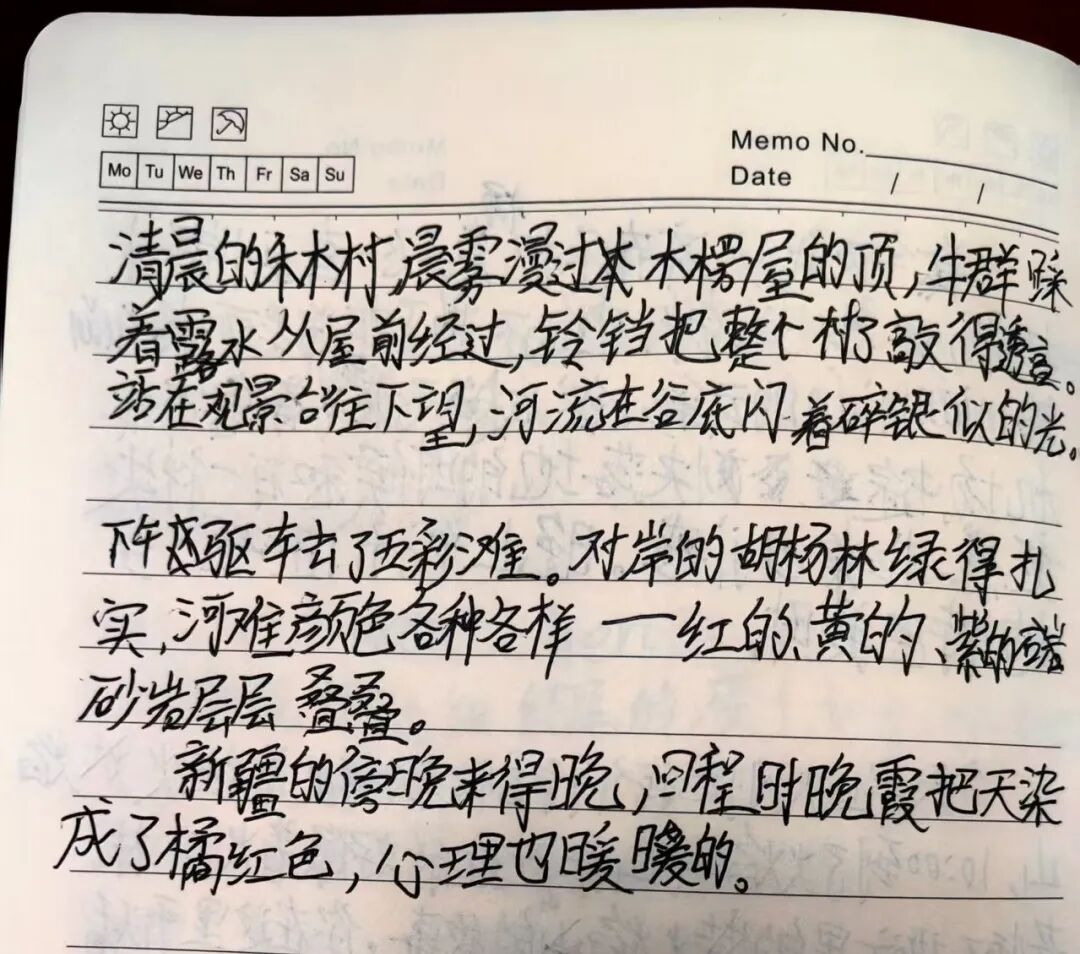 Memo No.
Date / /
Mo Tu We Th Fr Sa Su
清晨的禾木村,晨雾漫过木楞屋的顶,牛群踩
着露水从屋前经过,铃铛把整个村子敲得透亮。
站在观景台往下望,河流在谷底闪着碎银似的光。
下午驱车去了五彩滩。对岸的胡杨林绿得扎
实,河滩颜色各种各样——红的、黄的、紫的
砂岩层层叠叠。
新疆的傍晚来得晚,回程时晚霞把天染
成了橘红色,心理也暖暖的。